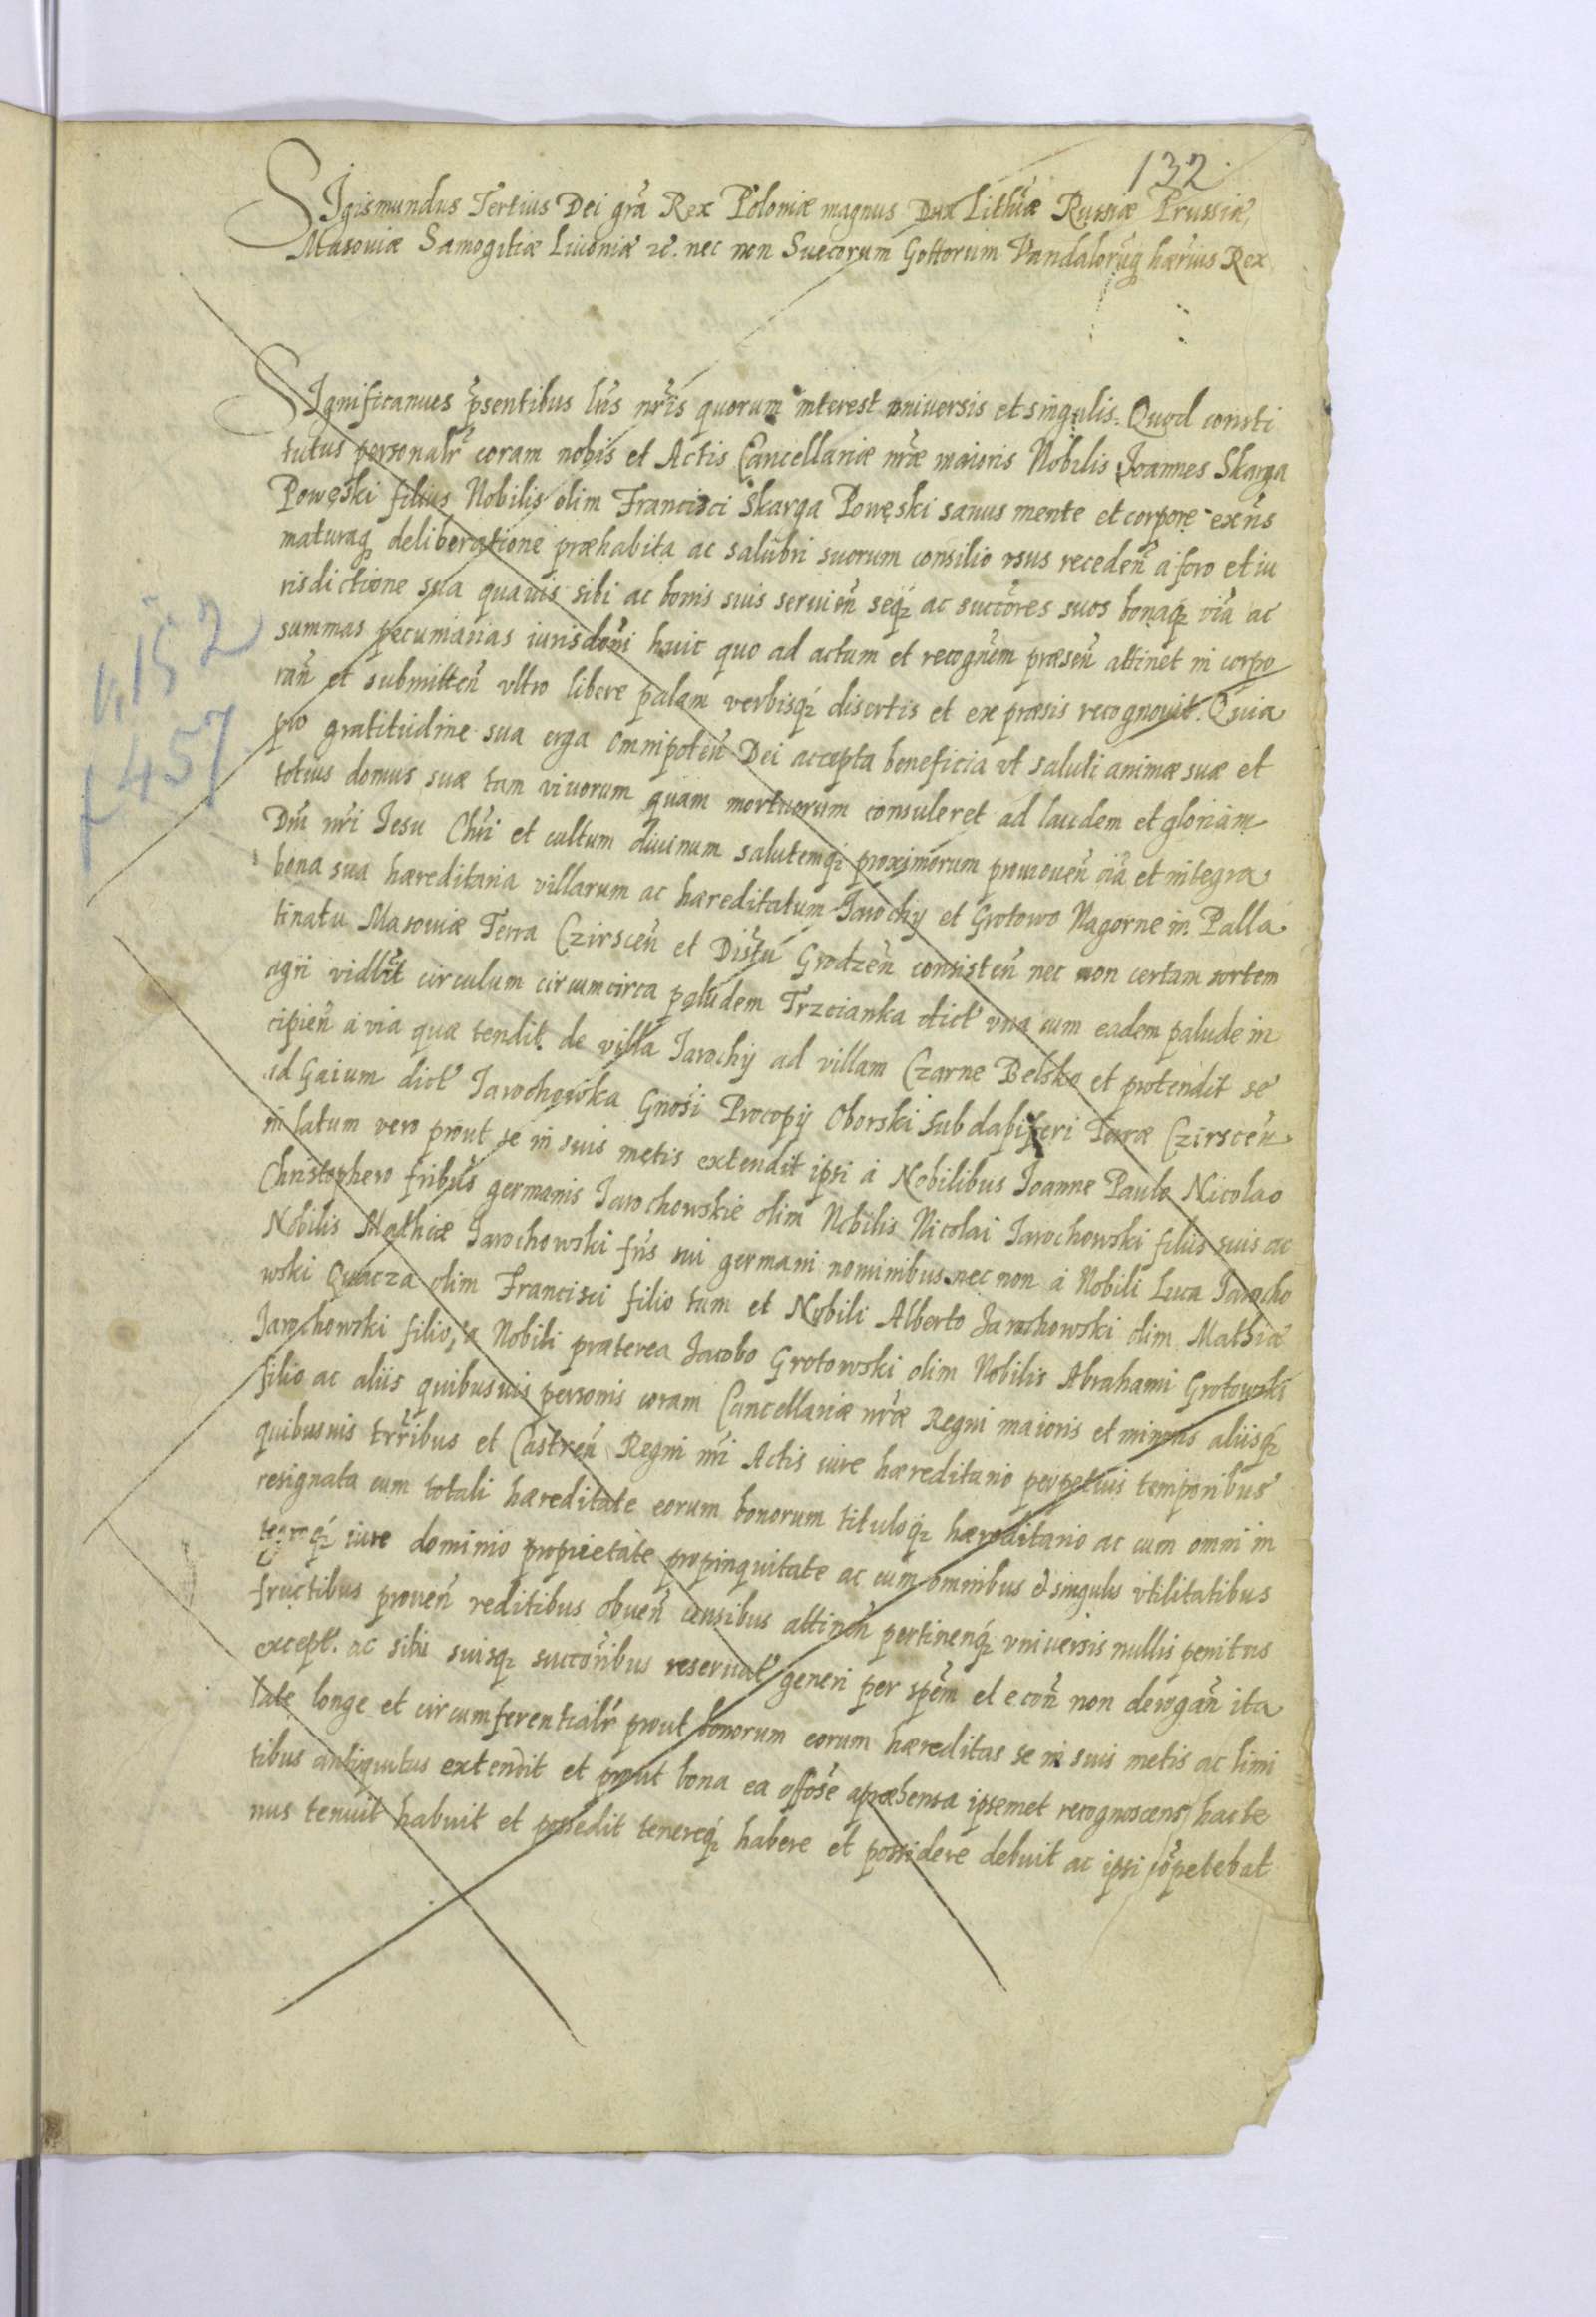 132
SIgismundus Tertius Dei grã Rex Poloniæ magnus Dux Lithũæ Russiæ Prussiæ,
Masoviæ Samogitiæ Livoniæ zc̃. nec non Suecorum Gottorum Vandalorũq hærius Rex
SIgnificamus p̃sentibus lr̃is nr̃is quorum interest universis et singulis. Quod consti
tutus personalr̃ coram nobis et Actis Cancellariæ nr̃æ maioris Nobilis Joannes Skarga
Powęski filius Nobilis olim Francisci Skarga Powęski sanus mente et corpore exñs
maturaq deliberatione præhabita ac salubri suorum consilio usus recedeñ a foro et iu
risdictione sua quavis sibi ac bonis suis servieñ seq̃ ac succ̃ores suos bonaq̃ viã ac
summas pecuniarias iurisdoñi huic quo ad actum et recognem̃ præseñ attinet in corpo
rañ et submitteñ vltro libere palam verbisq̃ disertis et expræsis recognovit. Quia
pro gratitudine sua erga Omnipoteñ Dei accepta beneficia vt saluti animæ suæ et
totius domus suæ tam vivorum quam mortuorum consuleret ad laudem et gloriam
Dñi nr̃i Jesu Chr̃i et cultum divinum salutemq̃ proximorum promoveñ oĩa et integra
bona sua hæreditaria villarum ac hæreditatum Jarochy et Grotowo Nagorne in Palla
tinatu Masoviæ Terra Czirsceñ et Distũ Grodzeñ consisteñ nec non certam sortem
agri vidlẽt circulum circumcirca paludem Trzcianka dict' vna cum eadem palude in
cipieñ a via quæ tendit de villa Jarochy ad villam Czarne Belsko et protendit se
ad Gaium dict' Jarochowka Gñosi Procopy Oborski Subdapiferi Terræ Czirsceñ
in latum vero prout se in suis metis extendit ipsi à Nobilibus Joanne Paulo Nicolao
Christophero fr̃ibus germanis Jarochowskie olim Nobilis Nicolai Jarochowski filiis suis ac
Nobilis Mathiæ Jarochowski fr̃is sui germani nominibus nec non à Nobili Luca Jarocho
wski Quacza olim Francisci filio tum et Nobili Alberto Jarochowski olim Mathiæ
Jarochowski filio, a Nobili præterea Jacobo Grotowski olim Nobilis Abrahami Grotowski
filio ac aliis quibusvis personis coram Cancellariæ nr̃æ Regni maioris et minoris aliisq̃
quibusvis trr̃ibus et Castreñ Regni nr̃i Actis iure hæreditario perpetuis temporibus
resignata cum totali hæreditate eorum bonorum tituloq̃ hæreditario ac cum omni in
tegroq̃ iure dominio proprietate propinquitate ac cum omnibus & singulis vtilitatibus
fructibus proveñ reditibus obveñ censibus attineñ pertinenq̃ vniversis nullis penitus
except'. ac sibi suisq̃ succõribus reservat' generi per spem̃ et e coñ non derogañ ita
late longe et circumferentialr̃ prout bonorum eorum hæreditas se in suis metis ac limi
tibus antiquitus extendit et prout bona ea offõse apræhensa ipsemet recognoscens hacte
nus tenuit habuit et possedit tenereq̃ habere et possidere debuit ac ipsi cõpetebat
1,152
f 457